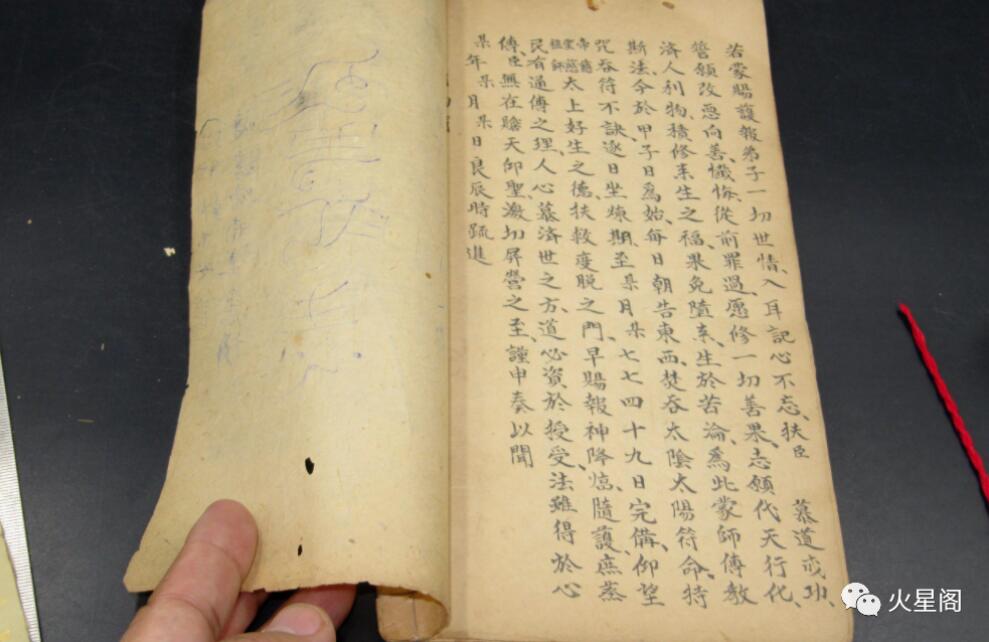 若蒙賜護報弟子一切世情、入耳記心不忘、扶臣慕道成功、
誓願改惡向善、懺悔從前罪過、愿修一切善果、志願代天行化、
濟人利物、積修來生之福、果免墮來生於苦淪、為此蒙師傳教
斯法、今於甲子日為始、每日朝告東西、焚吞太陰太陽符命、特
咒吞符不訣逐日坐煉、期至某月某七七四十九日完備、仰望
太上好生之德、扶救度脫之門、早賜報神降临、隨護、庶
民有通傳之理、人心慕濟世之方、道必資於授受、法雖得於心
傳、臣無在瞻天仰聖激切屏營之至、謹申奏以聞
某年某月某日良辰時疏進
火星阁